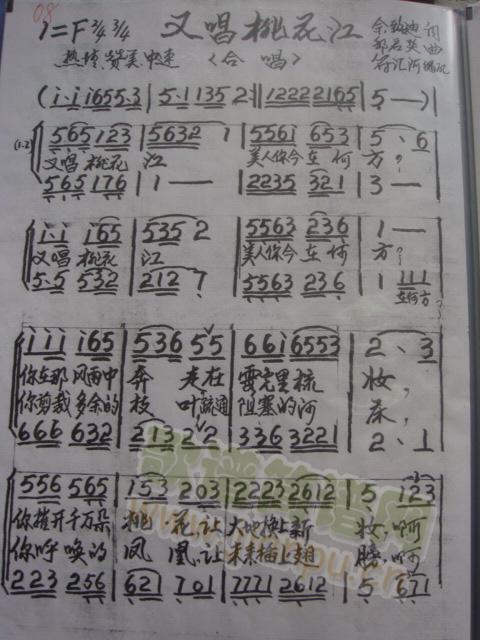 08
1=F 2/4 3/4 又唱桃花江
热情、赞美 中速 〈合唱〉
(i·i 1655·3 | 5·1135 2·|| 12222165 | 5 — )
(1.2) 565 123 | 5632 1 | 5561 653 | 5、6
又唱桃花 江 美人你今在何 方？
565 176 | 1 — | 2235 321 | 3 —
i·i i65 | 535 2 | 5563 236 | 1 —
又唱桃花 江 美人你今在何 方？
5·5 532 | 212 7 | 5563 236 | 1 111
在何方？
iii i65 | 536 55 | 66i6553 | 2、3
你在那风雨中 奔 走在 雪克里梳 妆，
你剪裁多余的 枝 叶疏通 阻塞的河 床，
666 632 | 213 22 | 336 3221 | 2、1
556 565 | 153 203 | 2223 2612 | 5 123
你摧开千万朵 桃 花，让 大地换上新 妆，啊
你呼唤的 凤 凰，让 未来插上翅 膀，啊
223 256 | 621 701 | 7771 2612 | 5 671